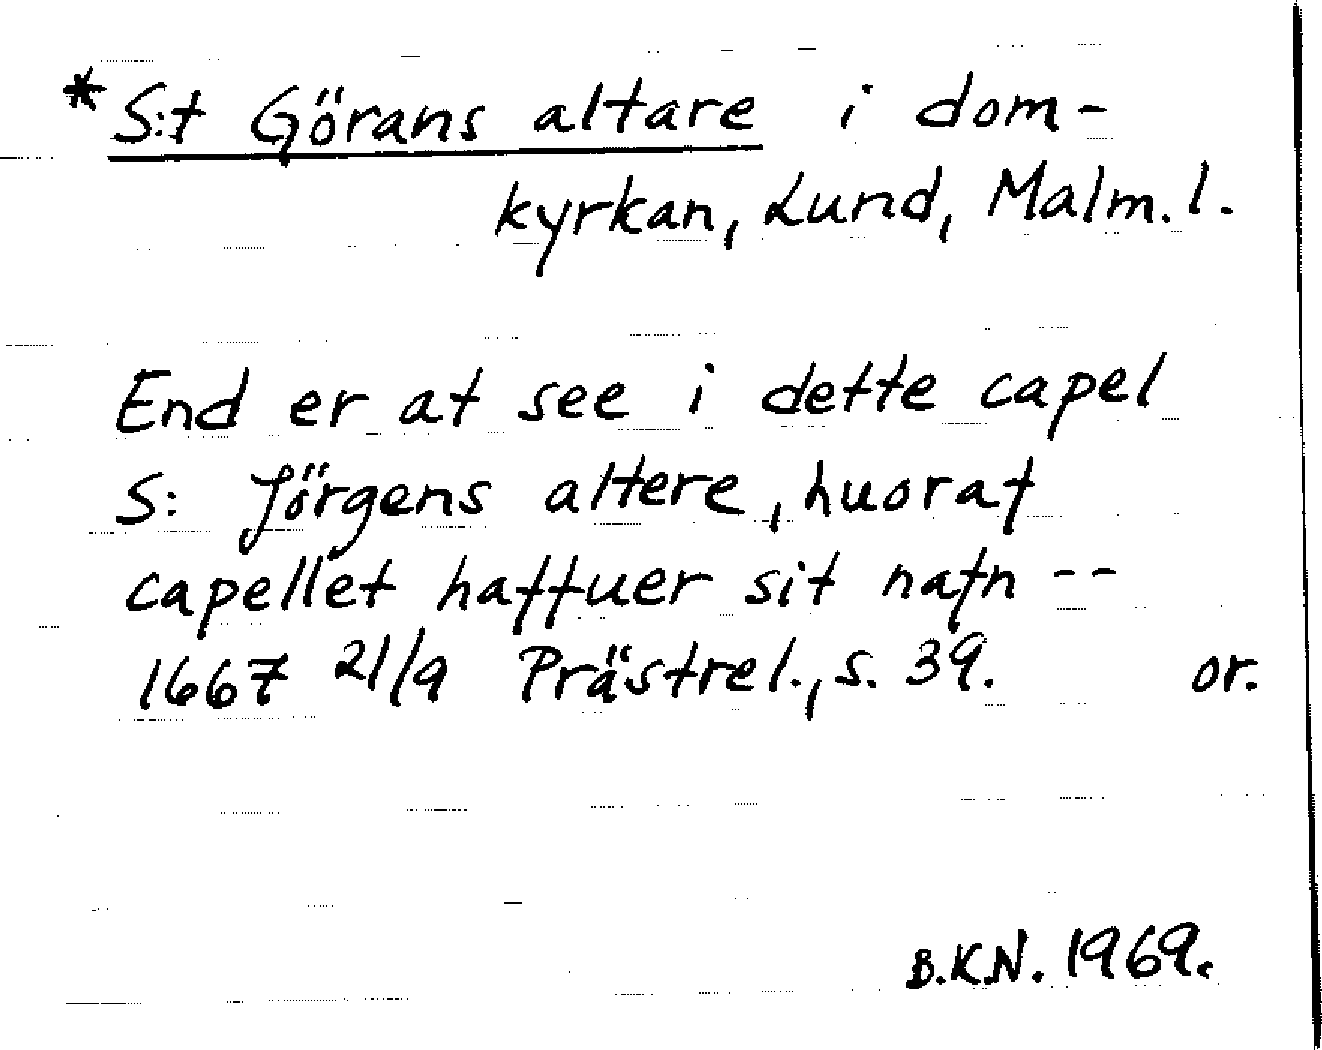 *S:t Görans altare i dom-
kyrkan, Lund, Malm. l.
End er at see i dette capel
S: Jörgens altere, huoraf
capellet haffuer sit nafn --
1667 21/9 Prästrel., s. 39. or.
B.K.N. 1969.